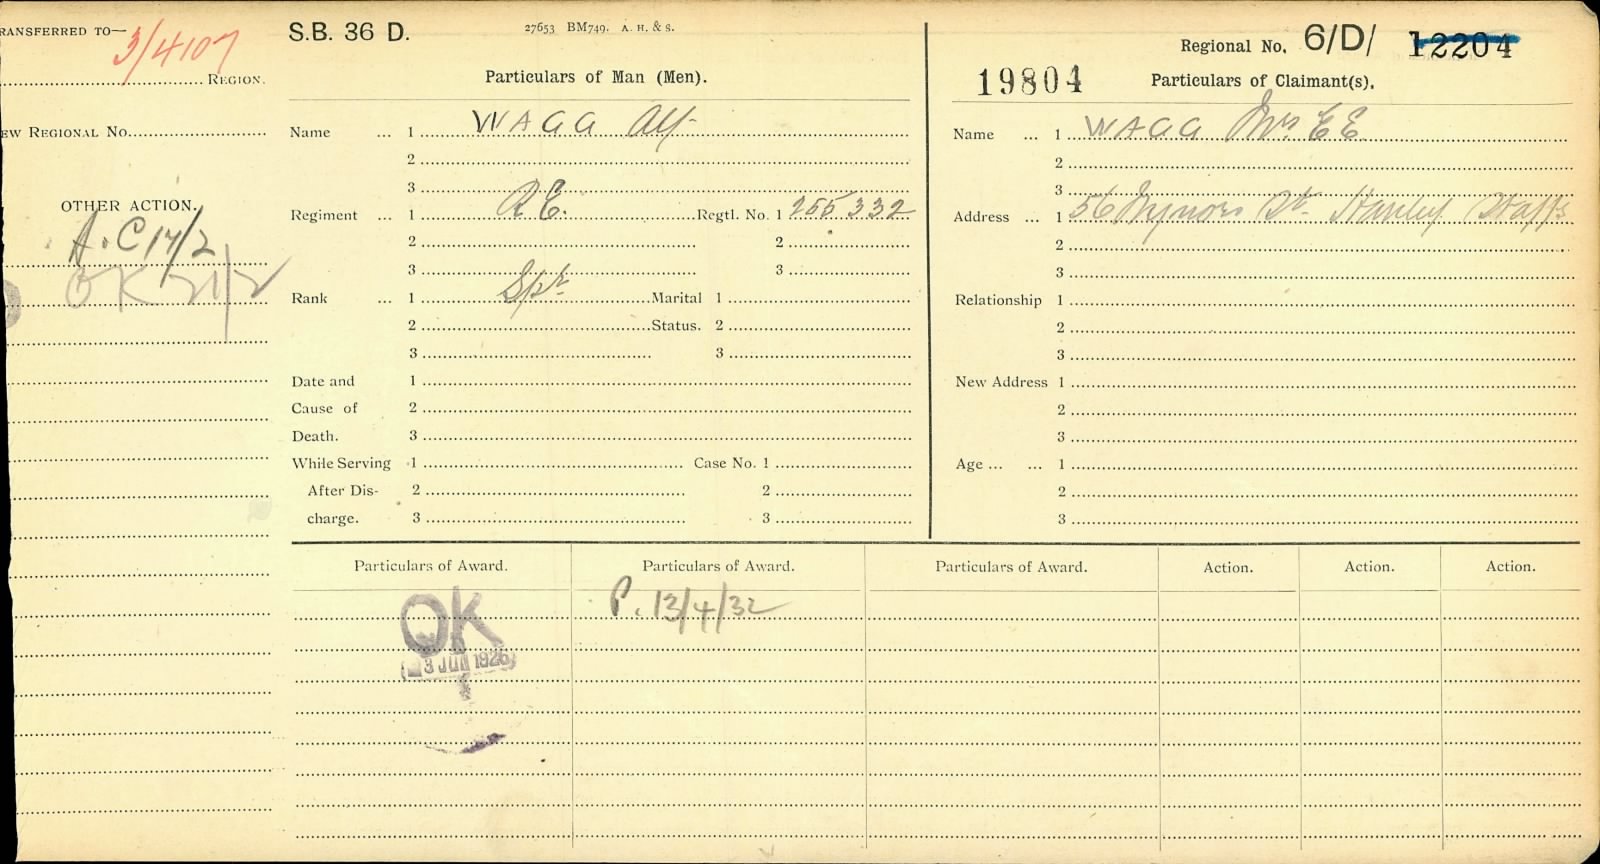 TRANSFERRED TO—
3/4107
REGION.
NEW REGIONAL No.
OTHER ACTION.
A.C 17/2
OK 21/2
S.B. 36 D.
27653 BM749. A. H. & S.
Particulars of Man (Men).
Name ... 1 WAGG Alf.
2
3
Regiment ... 1 R E. Regtl. No. 1 255332
2 2
3 3
Rank ... 1 Spr Marital 1
2 Status. 2
3 3
Date and 1
Cause of 2
Death. 3
While Serving 1 Case No. 1
After Dis- 2 2
charge. 3 3
Regional No. 6/D/ 12204
19804
Particulars of Claimant(s).
Name ... 1 WAGG Mrs E E
2
3
Address ... 1 56 Mynors St. Hanley Staffs
2
3
Relationship 1
2
3
New Address 1
2
3
Age ... ... 1
2
3
Particulars of Award. Particulars of Award. Particulars of Award. Action. Action. Action.
OK
3 JUN 1926
P. 13/4/32